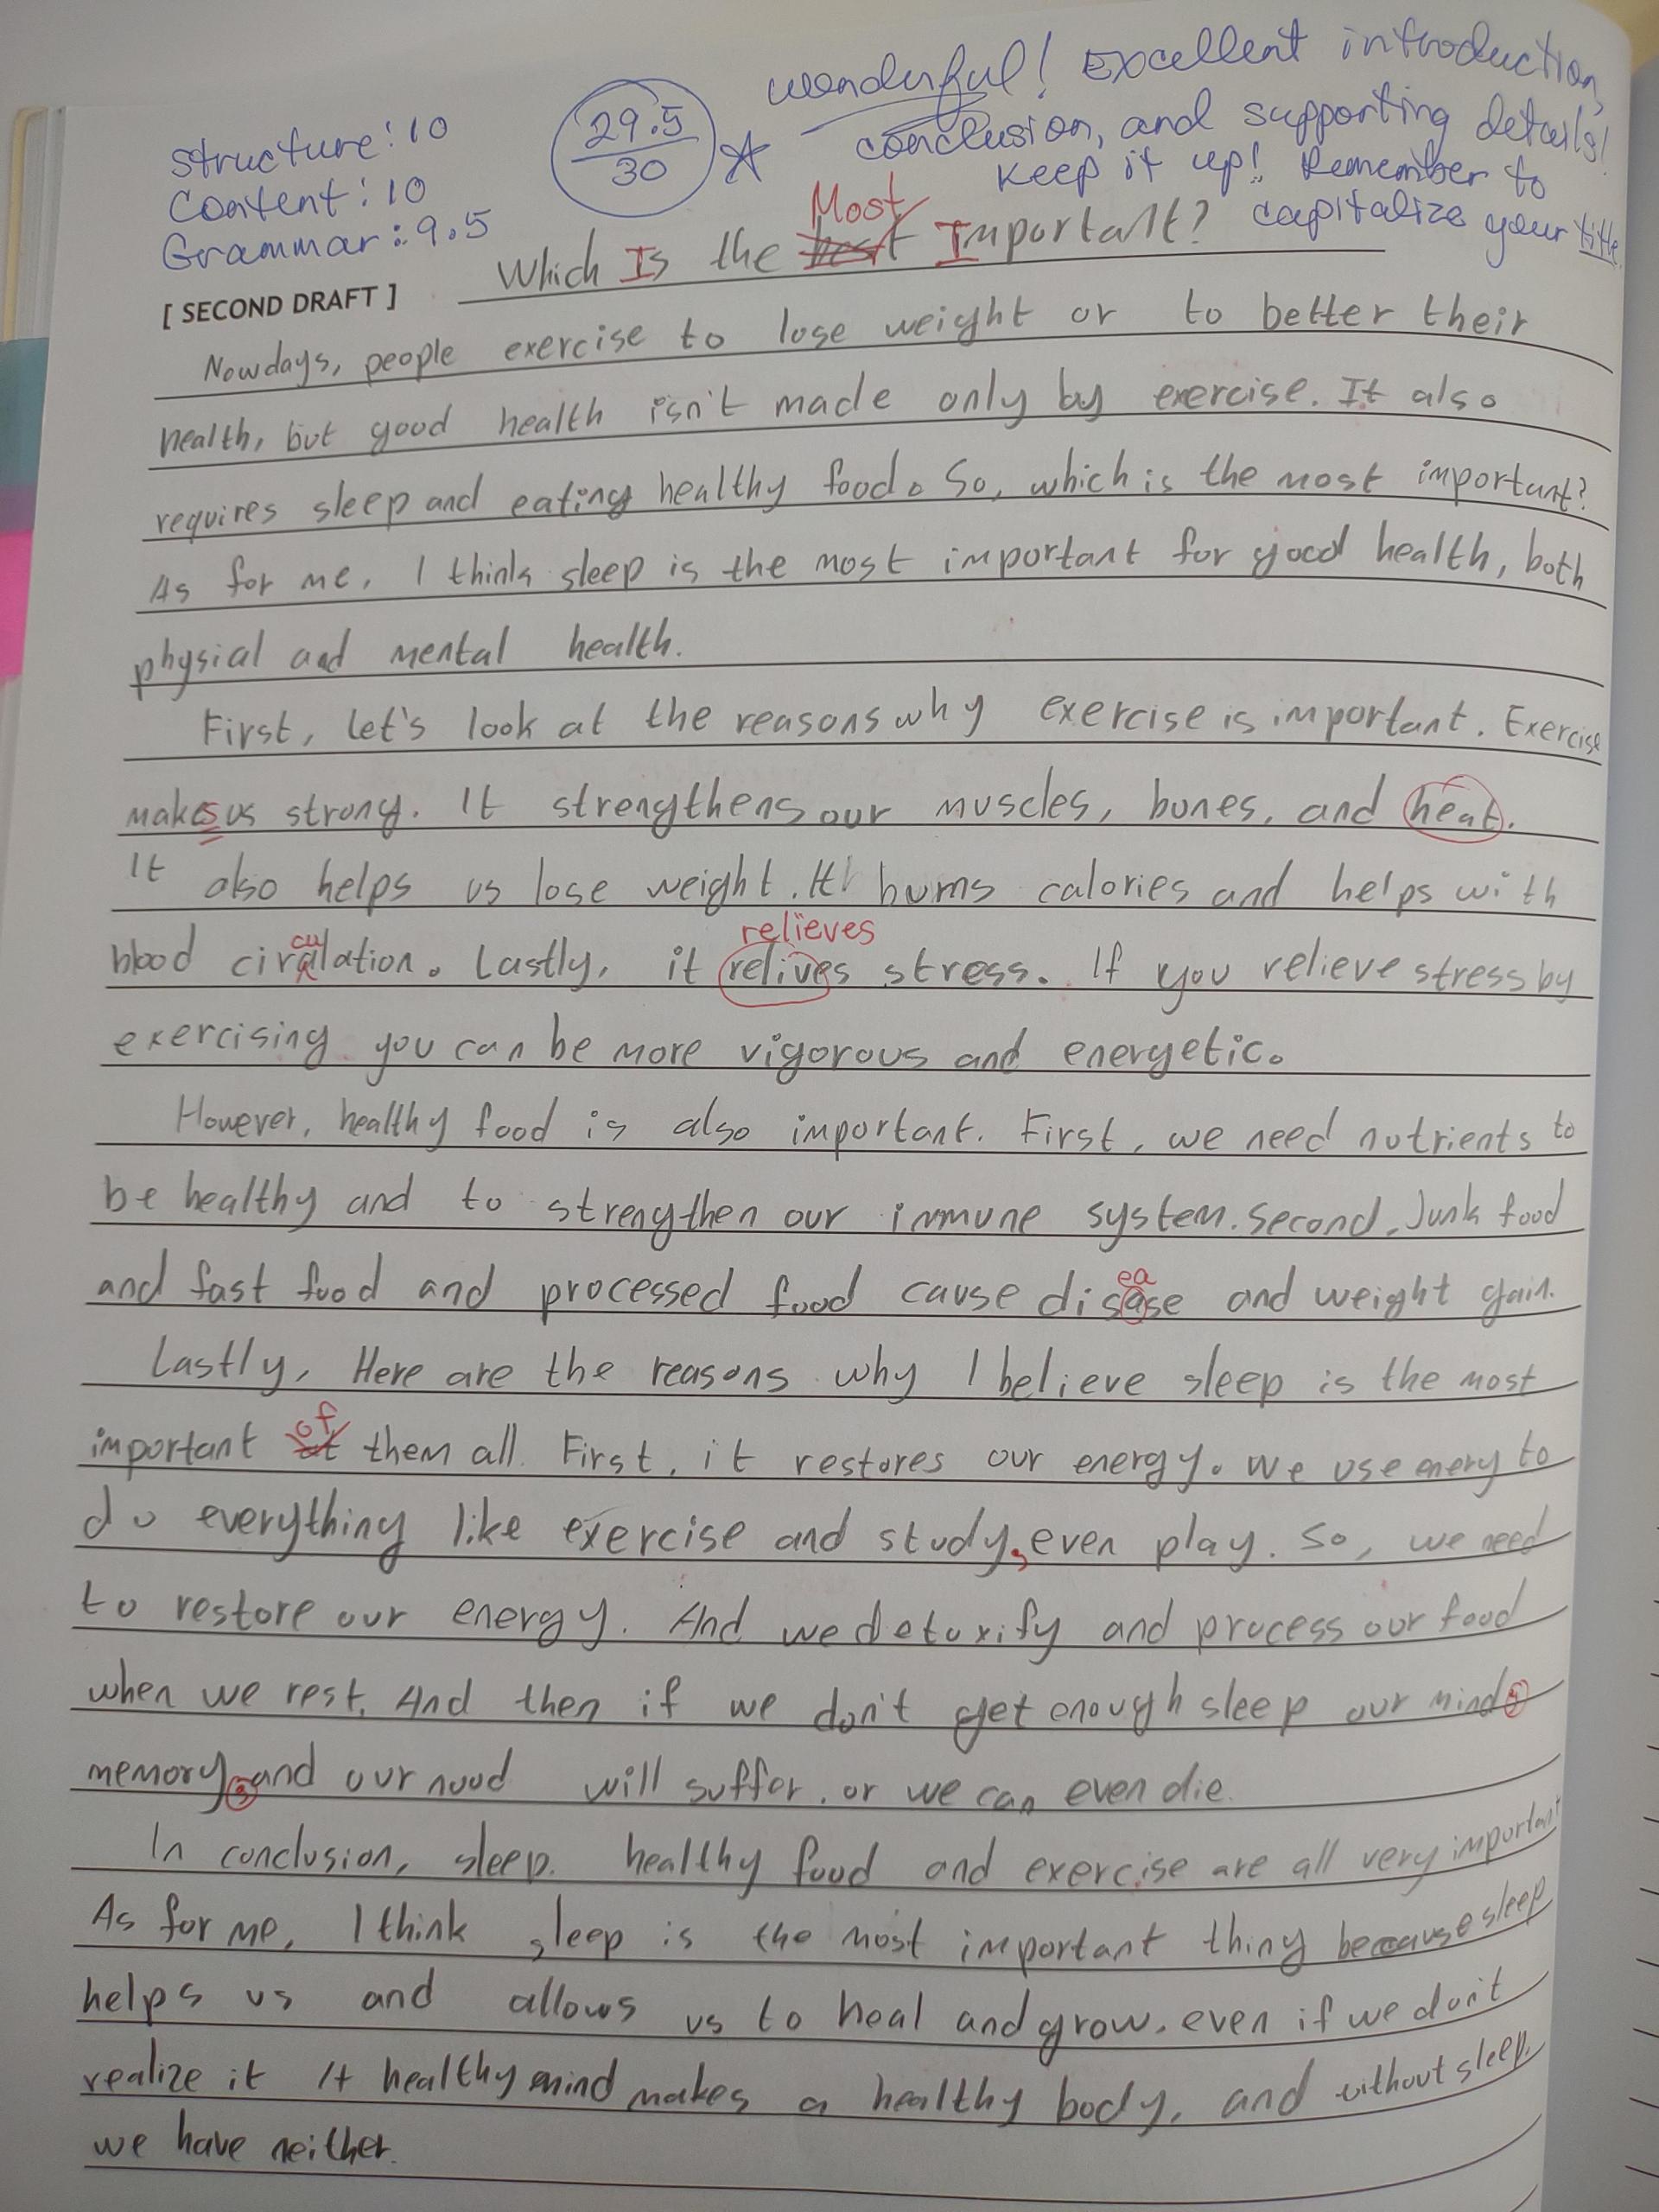 wonderful! Excellent introduction,
conclusion, and supporting details!
Keep it up! Remember to
capitalize your title
Structure: 10
Content: 10
Grammar: 9.5
29.5
30
Most
Which Is the best Important?
[ SECOND DRAFT ]
Nowdays, people exercise to lose weight or to better their
health, but good health isn't made only by exercise. It also
requires sleep and eating healthy food. So, which is the most important?
As for me, I think sleep is the most important for good health, both
physial and mental health.
First, let's look at the reasons why exercise is important. Exercise
makes us strong. It strengthens our muscles, bones, and heat.
It also helps us lose weight. It burns calories and helps with
relieves
blood circulation. Lastly, it relives stress. If you relieve stress by
exercising you can be more vigorous and energetic.
However, healthy food is also important. First, we need nutrients to
be healthy and to strengthen our immune system. Second, Junk food
ea
and fast food and processed food cause disase and weight gain.
Lastly, Here are the reasons why I believe sleep is the most
of
important at them all. First, it restores our energy. We use enery to
do everything like exercise and study, even play. So, we need
to restore our energy. And we detoxify and process our food
when we rest. And then if we don't get enough sleep our mind,
memory, and our mood will suffer, or we can even die.
In conclusion, sleep, healthy food and exercise are all very important
As for me, I think sleep is the most important thing because sleep
helps us and allows us to heal and grow, even if we don't
realize it A healthy mind makes a healthy body, and without sleep,
we have neither.